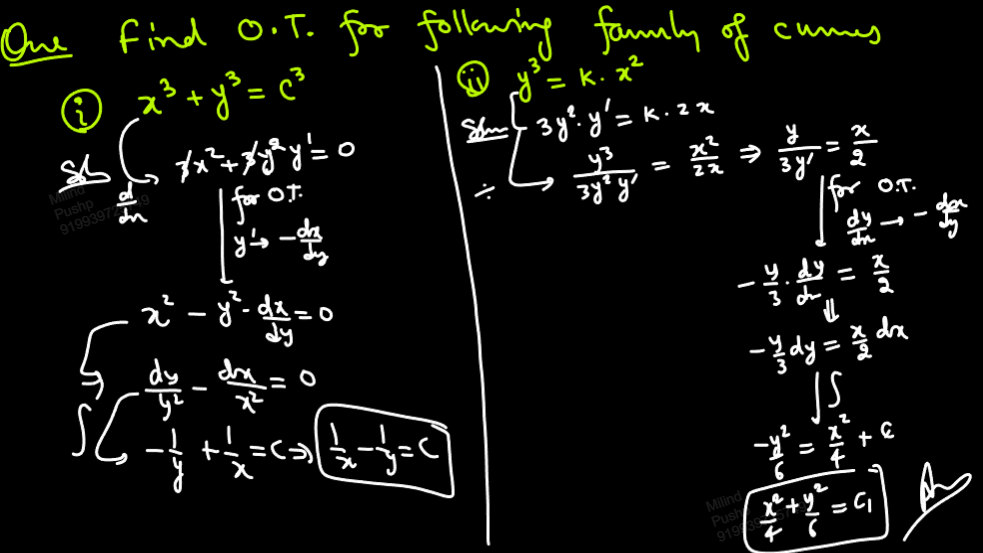 Que Find O.T. for following family of curves
(i) x³ + y³ = c³
Sol 3x² + 3y² y' = 0
d/dx
for O.T.
y' → -dx/dy
x² - y² · dx/dy = 0
⇒ dy/y² - dx/x² = 0
∫ -1/y + 1/x = C ⇒ 1/x - 1/y = C
(ii) y³ = K · x²
Soln 3y² · y' = K · 2x
÷ y³/3y² y' = x²/2x ⇒ y/3y' = x/2
for O.T.
dy/dx → -dx/dy
-y/3 · dy/dx = x/2
⇓
-y/3 dy = x/2 dx
∫
-y²/6 = x²/4 + C
x²/4 + y²/6 = C₁
Ans
Milind
Pushp
Milind
Pushp